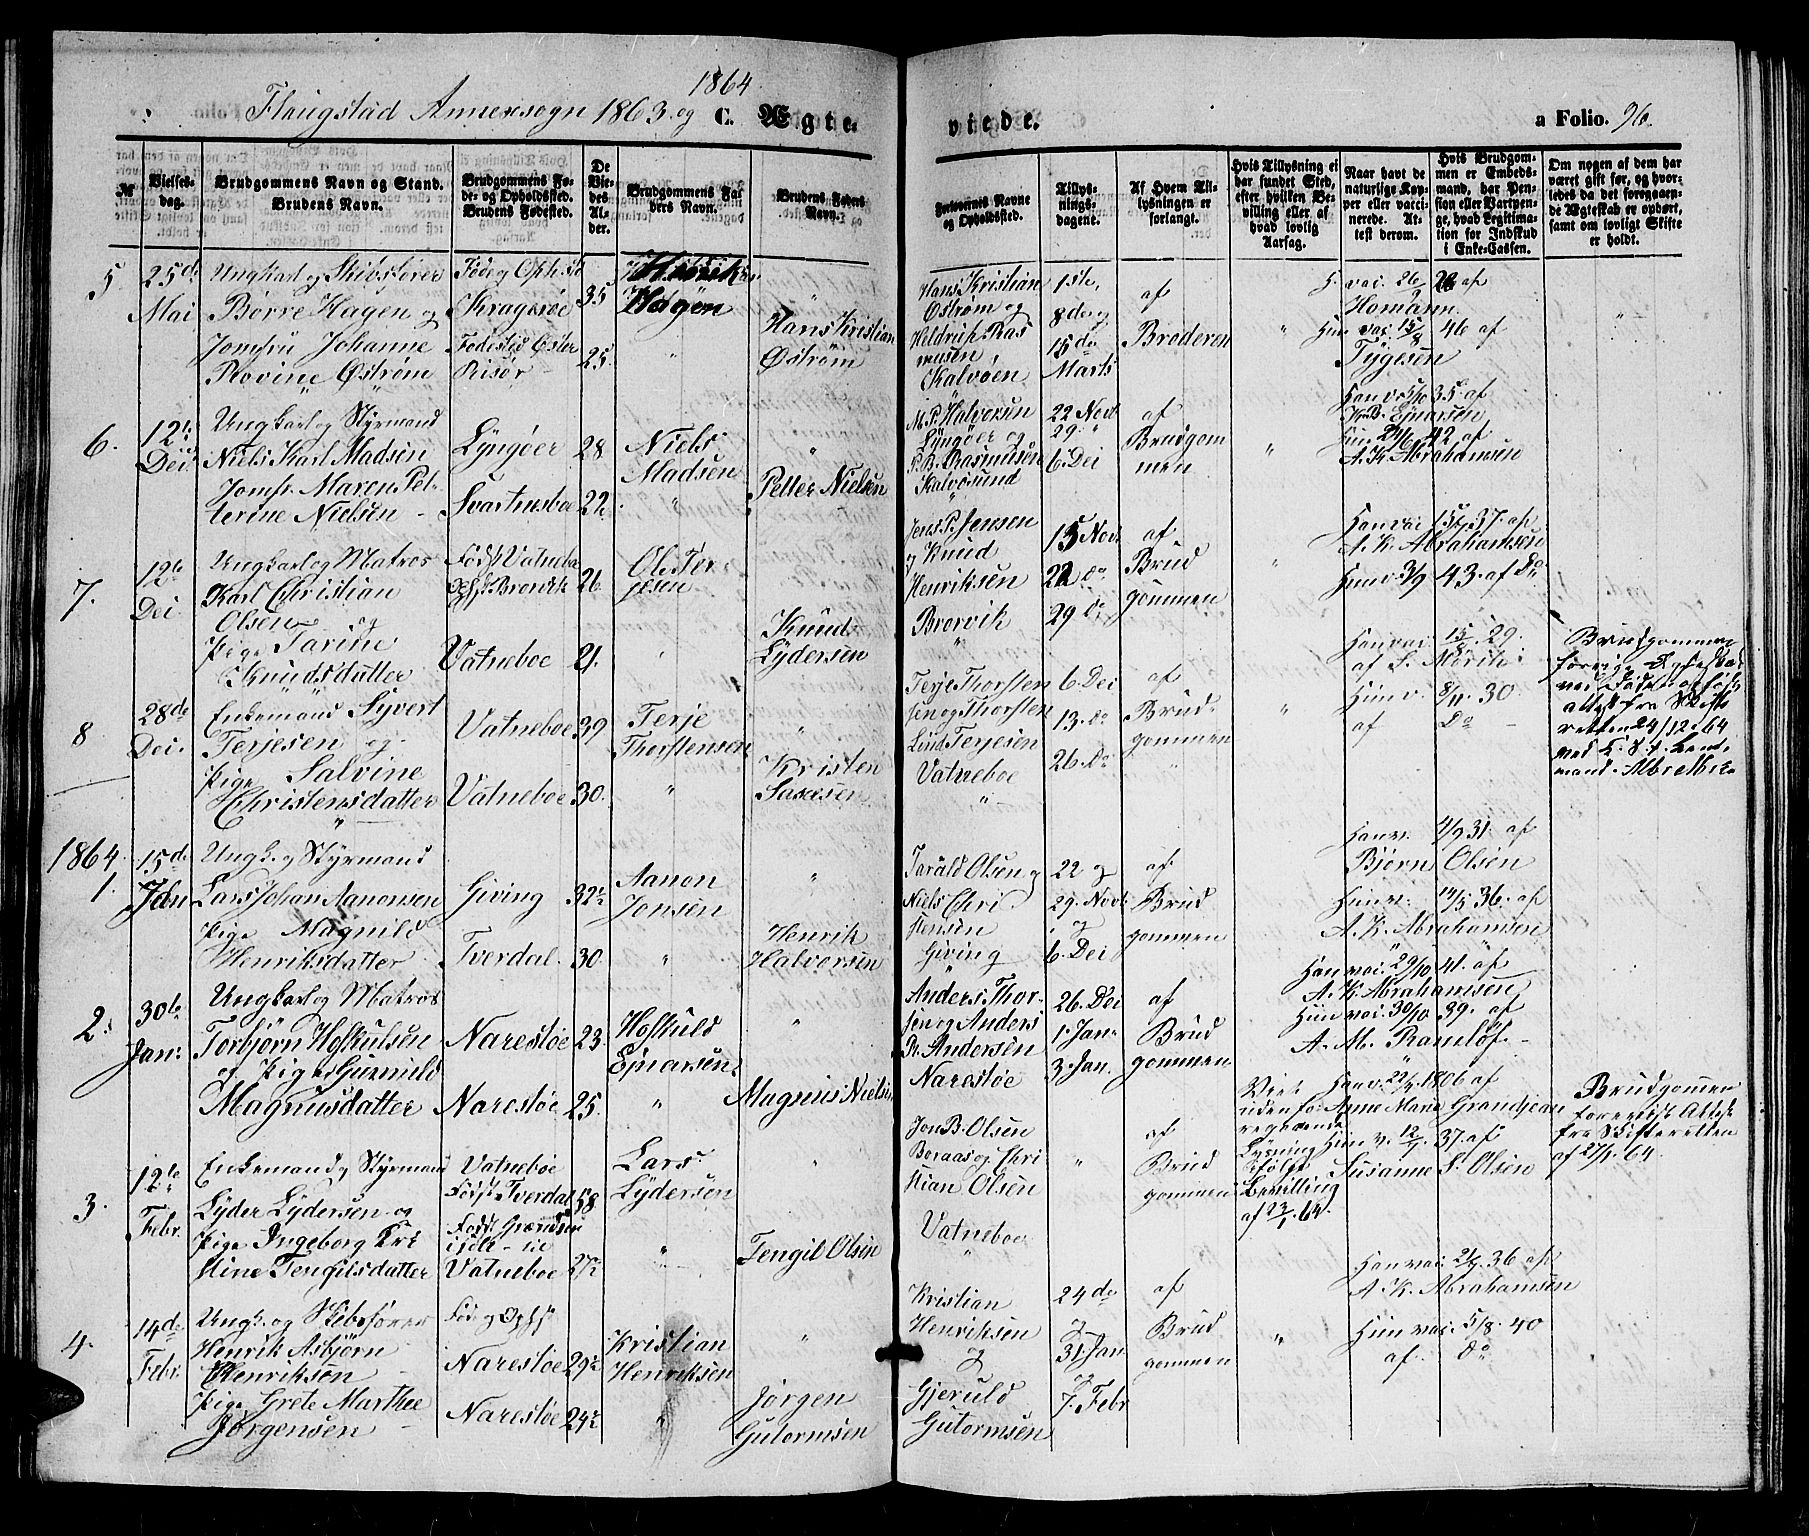 1864
Flaugstad Annexsogn 1863 og C. Ægte-
viede. a Folio. 96.
№
Vielses-
dag.
Brudgommens Navn og Stand.
Brudens Navn.
Brudgommens Fø-
de- og Opholdssted.
Brudens Fødested.
De
Vie-
des
Al-
der.
Brudgommens Fa-
ders Navn.
Brudens Faders
Navn.
Forlovernes Navne
og Opholdssted.
Tillys-
nings-
dagene.
Af Hvem Til-
lysningen er
forlangt.
Hvis Tillysning ei
har fundet Sted,
efter hvilken Be-
villing eller af
hvad lovlig
Aarsag.
Naar havt de
naturlige Kop-
per eller vacci-
nerede. At-
test derom.
Hvis Brudgom-
men er Embeds-
mand, har Pen-
sion eller Vartpen-
ge, hvad Legitima-
tion for Indskud
i Enke-Cassen.
Om nogen af dem har
været gift før, og hvor-
ledes da det foregaaen-
de Ægteskab er ophørt,
samt om lovligt Skifte
er holdt.
5.
25de
Mai
Ungkarl og Skibsfører
Børre Hagen og
Jomfru Johanne
Rovine Østrøm
Kragerøe
Fødested Øster
Risør
35
25.
Hagen
"
Hans Kristian
Østrøm
Hans Kristian
Østrøm og
Heldrich Ras
musen
Kalvøen
1ste,
8de og
15de
Marts
af
Broderen
"
af
Homann
46 af
Tygesen
6.
12te
Dec
Ungkarl og Styrmand
Niels Karl Madsen
Jomfr. Maren Pet-
terine Nielsen
Lyngøer
Svartnesboe
28
22
Niels
Madsen
"
Petter Nielsen
M. P. Halvorsen
Lyngøer og
P. B. Rasmusen
Kalvøsund
22 Novb
29. "
6. Dei
af
Brudgom
men
"
Han v. 5/10 35 af
K. B. Ejnarsen
Hun 24/6 42 af
A. K. Abrahamsen
7.
12te
Dei
Ungkarl og Matros
Karl Christian
Olsen og
Pige Tarine
Knudsdatter
Føds. Vatnebo
Ophs. Brorvik
Vatneboe
26
21.
Ole Ter-
jesen
"
Knud
Lydersen
Jens P. Jensen
og Knud
Henriksen
Brorvik
15 Nov.
22 do
29 do
af
Brud
gommen
"
37. af
A. K. Abrahamsen
Hun v 3/9 43. af Do
8
28de
Dei.
Enkemand Syvert
Terjesen og
Pige Salvine
Christensdatter
Vatneboe
Vatneboe
39
30.
Terje
Thorstensen
"
Kristen
Terje Thorsten
sen og Thorsten
Lund Terjesen
Vatneboe
6. Dei
13. do
26. Do
af
Brud
gommen
"
Han vac. 15/ 29.
af S. Mørik
Hun v. 8/11 30
af Do
Brudgommens
attest fra Skifte
retten 24/12. 64
1864.
1.
15de
Jan
Ungk. og Styrmand
Lars Johan Aanonsen
Pige Magnild
Henriksdatter
Giving
Tverdal
32
30
Aanon
Jonsen
"
Henrik
Halvorsen
Tarald Olsen og
Niels Chri
stensen
Giving
22 og
29. Novb
og
6. Dei
af
Brud
gommen
Han v. 4/9 31. af
Bjørn Olsen
Hun v. 14/5 36. af
A. K. Abrahamsen
2.
30te
Jan.
Ungkarl og Matros
Torbjørn Hofkulsen
og Pige Gunnild
Magnusdatter
Narestøe
Narestøe
23.
25.
Hofkuld
Ejnarsen
"
Magnus Nielsen
Anders Thor-
sen og Anders
R. Andersen
Narestøe
26. Dei
1. Jan.
3. Jan.
af
Brud
gommen
Han vac. 29/10 41. af
A. K. Abrahamsen
Hun vac. 30/10 39. af
A. M. Ramløf
3.
12te
Febr.
Enkemand og Styrmand
Lyder Lydersen og
Pige Ingeborg Kri
stine Tengilsdatter
Vatneboe
Føds. Tverdal
Vatneboe
58
27
Lars
Lydersen
"
Tengil Olsen
Jon B. Olsen
Boraas og Chri
stian Olsen
Vatneboe
"
af
Brud
gommen
Viet
uden fo
regaaende
Lysning
ifølge
Bevilling
af 23/1. 64.
Han v. 22/7 1806 af
Anne Marie Grandjean
Hun v. 12/7. 37. af
Susanne S. Olsen
Brudgommen
foreviist Attest
fra Skifteretten
af 27/1. 64.
4.
14de
Febr.
Ungk. og Skibsfører
Henrik Asbjørn
Henriksøn
Pige Grete Marthe
Jørgensen
Føde og Ophst
Narestøe
Narestøe
29
24
Kristian
Henriksen
"
Jørgen
Gutormsen
Kristian
Henriksen
og
Gjeruld
Gutormsen
24de
og
31. Jan
og
7. Febr
af
Brud
gommen
"
Han vac. 36 af
A. K. Abrahamsen
Hun vac. 5/8. 40
af. Do